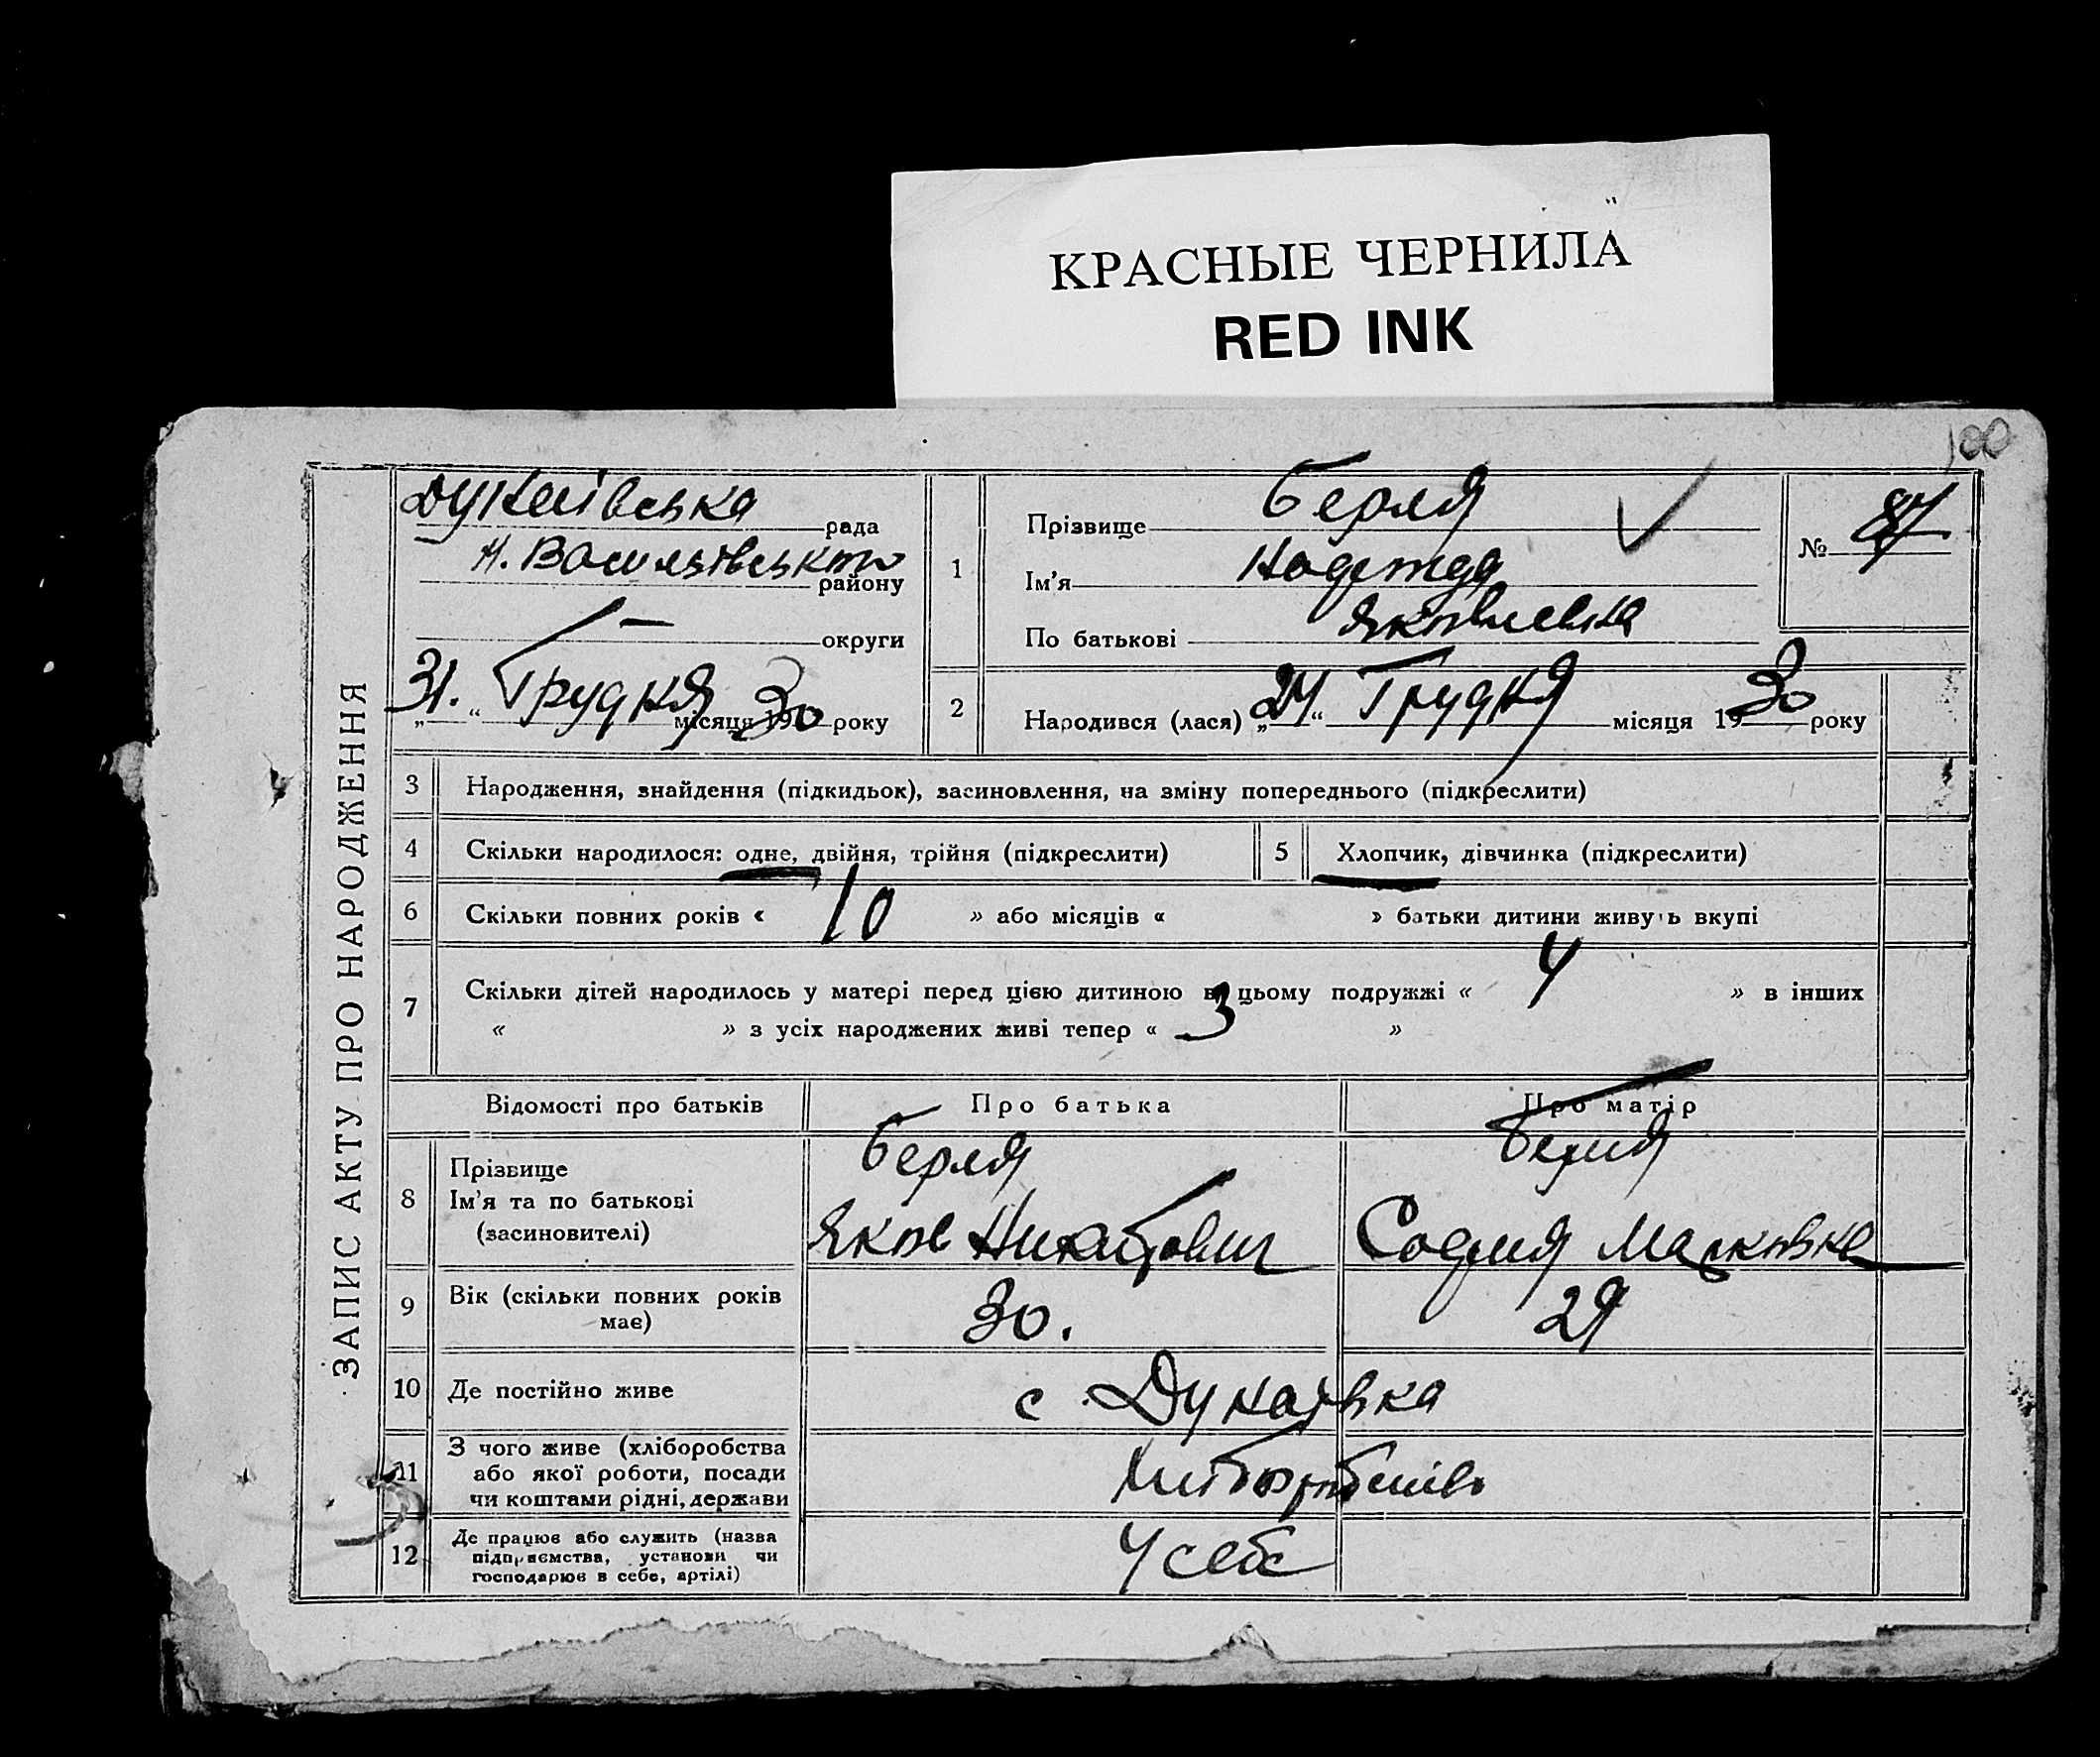 КРАСНЫЕ ЧЕРНИЛА
RED INK
100
ЗАПИС АКТУ ПРО НАРОДЖЕННЯ
Дунаївська рада
Н. Васильївського району
— округи
„31.“ Грудня місяця 1930 року
1
Прізвище Берля
Ім'я Надежда
По батькові Яковлевна
№ 87
2 Народився (лася) „24“ Грудня місяця 1930 року
3 Народження, знайдення (підкидьок), засиновлення, на зміну попереднього (підкреслити)
4 Скільки народилося: одне, двійня, трійня (підкреслити)
5 Хлопчик, дівчинка (підкреслити)
6 Скільки повних років « 10 » або місяців « » батьки дитини живуть вкупі
7 Скільки дітей народилось у матері перед цією дитиною в цьому подружжі « 4 » в інших
« » з усіх народжених живі тепер « 3 »
Відомості про батьків Про батька Про матір
8 Прізвище
Ім'я та по батькові
(засиновителі)
Берля
Яков Никитович
Берля
София Марковна
9 Вік (скільки повних років
має)
30. 29
10 Де постійно живе с. Дунаївка
11 З чого живе (хліборобства
або якої роботи, посади
чи коштами рідні, держави
12 Де працює або служить (назва
підприємства, установи чи
господарює в себе, артілі)
У себе